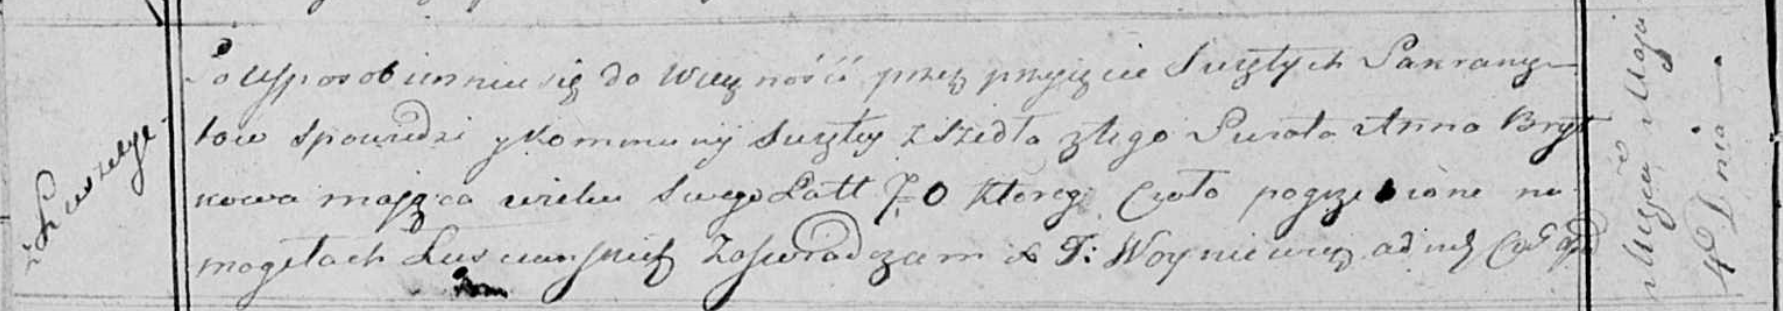 z Łuszczyc
Po Usposobienniu się do Wiecznośći przez przyięcie Swiętych Sakramę-
tow Spowiedzi y Kommuny Swiętey z szedła z tego Swiata Anna Bryt
kowa maiąca wieku Swego Latt 70 Ktorey Ciało pogrzebione na
mogiłach zaswiadczam X T: Woyniewicz
Miesiąca Maja
4 Dnia